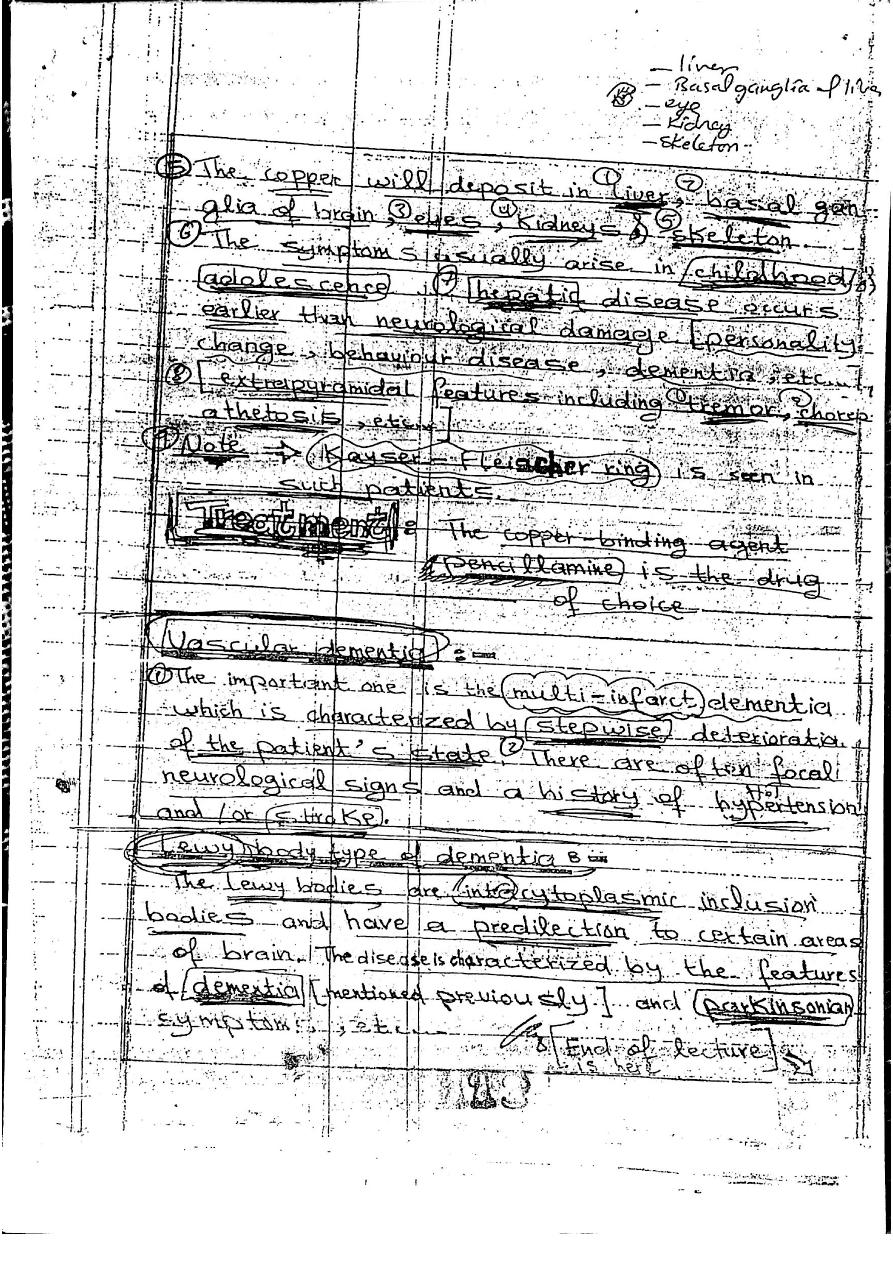 — liver
— Basal ganglia of
— eye
— Kidney
— skeleton
⑤ The copper will deposit in ① liver, ② basal gan
glia of brain, ③ eyes, ④ Kidneys & ⑤ skeleton
⑥ The symptoms usually arise in childhood
adolescence ⑦ hepatic disease occurs
earlier than neurological damage [personality
change, behaviour disease, dementia, etc....,
⑧ [extrapyramidal features including ① tremor, ② chorea
athetosis, etc...]
⑨ Note ⇒ Kayser-Fleischer ring is seen in
such patients.
Treatment : The copper-binding agent
pencillamine is the drug
of choice
Vascular dementia :-
① The important one is the multi-infarct dementia
which is characterized by stepwise deterioratio
of the patient's state. ② There are often focal
neurological signs and a history of hypertension
and/or stroke.
Lewy body type of dementia :-
The Lewy bodies are intracytoplasmic inclusion
bodies and have a predilection to certain areas
of brain. The disease is characterized by the features
of dementia [mentioned previously] and parkinsonian
symptoms, etc....
[End of lecture]
is here